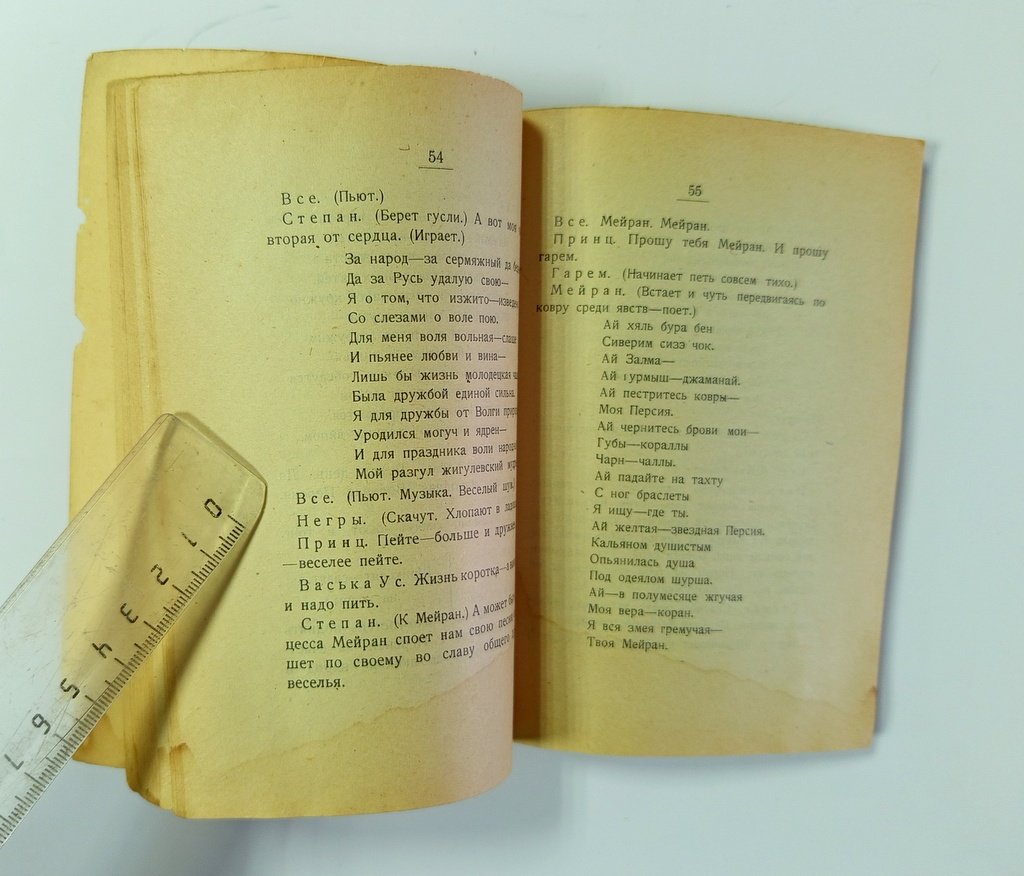 54
Все. (Пьют.)
Степан. (Берет гусли.) А вот моя
вторая от сердца. (Играет.)
За народ—за сермяжный да
Да за Русь удалую свою—
Я о том, что изжито—изведен
Со слезами о воле пою.
Для меня воля вольная—слаще
И пьянее любви и вина—
Лишь бы жизнь молодецкая
Была дружбой единой сильна.
Я для дружбы от Волги
Уродился могуч и ядрен—
И для праздника воли народн
Мой разгул жигулевский
Все. (Пьют. Музыка. Веселый шум.)
Негры. (Скачут. Хлопают в
Принц. Пейте—больше и
—веселее пейте.
Васька Ус. Жизнь коротка—
и надо пить.
Степан. (К Мейран.) А может
цесса Мейран споет нам свою
шет по своему во славу общего
веселья.
55
Все. Мейран. Мейран.
Принц. Прошу тебя Мейран. И прошу
гарем.
Гарем. (Начинает петь совсем тихо.)
Мейран. (Встает и чуть передвигаясь по
ковру среди явств—поет.)
Ай хяль бура бен
Сиверим сизэ чок.
Ай Залма—
Ай гурмыш—джаманай.
Ай пестритесь ковры—
Моя Персия.
Ай чернитесь брови мои—
Губы—кораллы
Чарн—чаллы.
Ай падайте на тахту
С ног браслеты
Я ищу—где ты.
Ай желтая—звездная Персия.
Кальяном душистым
Опьянилась душа
Под одеялом шурша.
Ай—в полумесяце жгучая
Моя вера—коран.
Я вся змея гремучая—
Твоя Мейран.
0
1
2
3
4
5
6
7